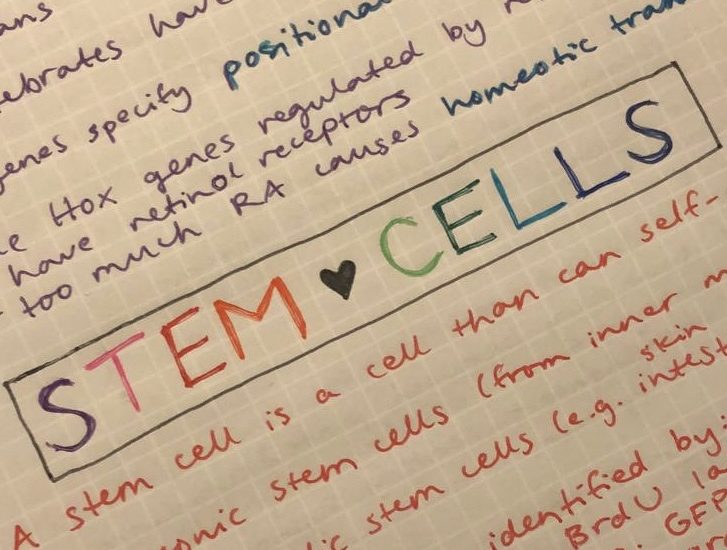 ans
ebrates have
genes specify positiona
e Hox genes regulated by r
have retinol receptors homeotic tran
too much RA causes
STEM ♥ CELLS
A stem cell is a cell than can self-
onic stem cells (from inner m
ic stem cells (e.g. intest
skin
identified by:
BrdU la
GFP